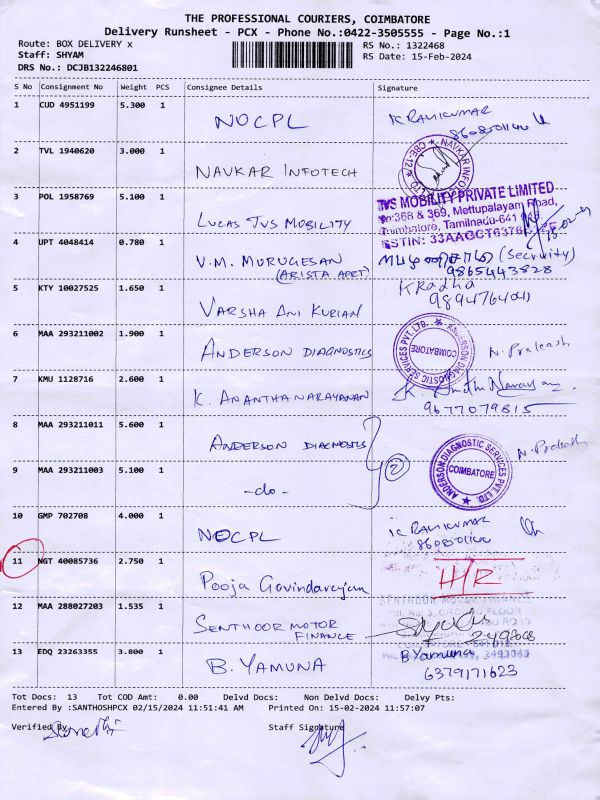 THE PROFESSIONAL COURIERS, COIMBATORE
Delivery Runsheet - PCX - Phone No.:0422-3505555 - Page No.:1
Route: BOX DELIVERY x
RS No.: 1322468
Staff: SHYAM
RS Date: 15-Feb-2024
DRS No.: DCJB132246801
S No Consignment No Weight PCS Consignee Details Signature
1 CUD 4951199 5.300 1 NOCPL K RAVIKUMAR
2 TVL 1940620 3.000 1 NAVKAR INFOTECH
3 POL 1958769 5.100 1 LUCAS TVS MOBILITY
TVS MOBILITY PRIVATE LIMITED
No:368 & 369, Mettupalayam Road,
Coimbatore, Tamilnadu-641
GSTIN: 33AAGCT6376
4 UPT 4048414 0.780 1 V.M. MURUGESAN
(ARISTA APRT)
(Security)
9865443828
5 KTY 10027525 1.650 1 VARSHA ANI KURIAN K Radha
9894764041
6 MAA 293211002 1.900 1 ANDERSON DIAGNOSTICS N. Prakash
ANDERSON DIAGNOSTIC SERVICES PVT. LTD.
COIMBATORE
7 KMU 1128716 2.600 1 K. ANANTHANARAYANAN
9677079815
8 MAA 293211011 5.600 1 ANDERSON DIAGNOSTICS N. Prakash
2
ANDERSON DIAGNOSTIC SERVICES PVT. LTD.
COIMBATORE
9 MAA 293211003 5.100 1 -do-
10 GMP 702708 4.000 1 NOCPL K RAVIKUMAR
11 NGT 40085736 2.750 1 Pooja Govindarajan H/R
12 MAA 288027203 1.535 1 SENTHOOR MOTOR
FINANCE
13 EDQ 23263355 3.800 1 B. YAMUNA B Yamuna
6379171623
Tot Docs: 13 Tot COD Amt: 0.00 Delvd Docs: Non Delvd Docs: Delvy Pts:
Entered By :SANTHOSHPCX 02/15/2024 11:51:41 AM Printed On: 15-02-2024 11:57:07
Verified By
Staff Signature